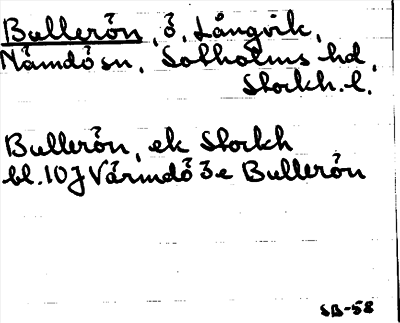 Bullerön, ö, Långvik,
Nämdö sn, Solholms hd,
Stockh. l.
Bullerön, ek Stockh
bl. 10J Värmdö 3e Bullerön
SB-58